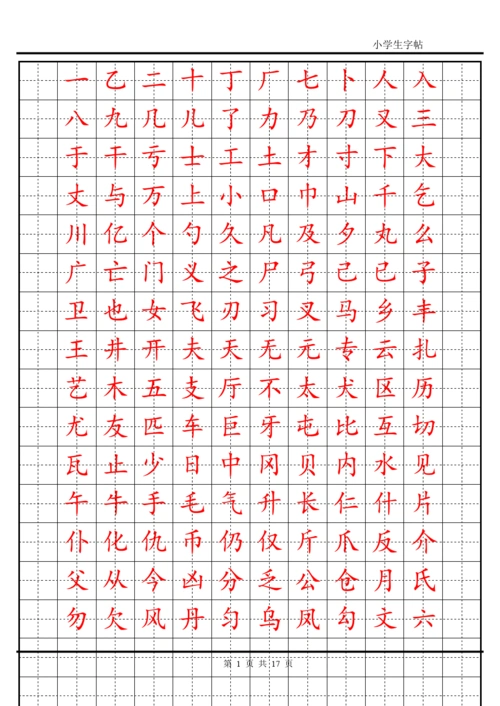 小学生字帖
一乙二十丁厂七卜人入
八九几儿了力乃刀又三
于干亏士工土才寸下大
丈与万上小口巾山千乞
川亿个勺久凡及夕丸么
广亡门义之尸弓己已子
卫也女飞刃习叉马乡丰
王井开夫天无元专云扎
艺木五支厅不太犬区历
尤友匹车巨牙屯比互切
瓦止少日中冈贝内水见
午牛手毛气升长仁什片
仆化仇币仍仅斤爪反介
父从今凶分乏公仓月氏
勿欠风丹匀乌凤勾文六
第 1 页 共 17 页